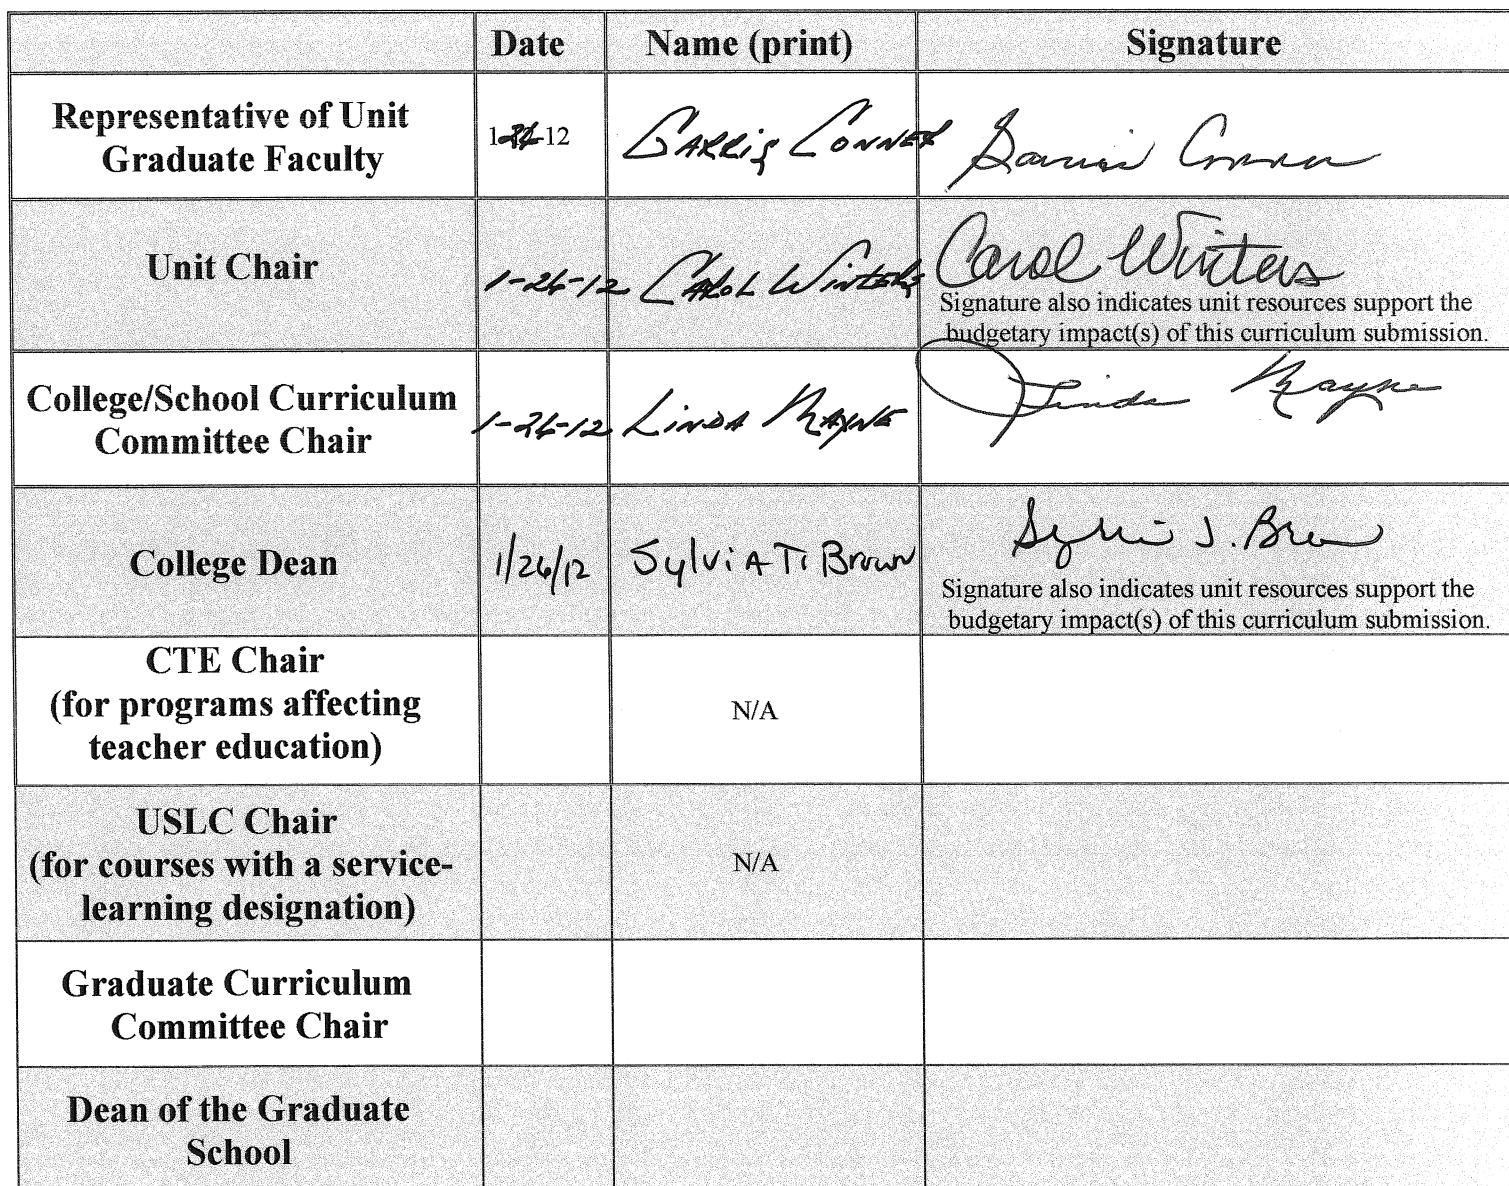 Date Name (print) Signature
Representative of Unit
Graduate Faculty
1-26-12 GARRIS CONNER Garris Conner
Unit Chair
1-26-12 CAROL WINTERS Carol Winters
Signature also indicates unit resources support the
budgetary impact(s) of this curriculum submission.
College/School Curriculum
Committee Chair
1-26-12 LINDA MAYNE Linda Mayne
College Dean
1/26/12 SylviA T. Brown Sylvia T. Brown
Signature also indicates unit resources support the
budgetary impact(s) of this curriculum submission.
CTE Chair
(for programs affecting
teacher education)
N/A
USLC Chair
(for courses with a service-
learning designation)
N/A
Graduate Curriculum
Committee Chair
Dean of the Graduate
School